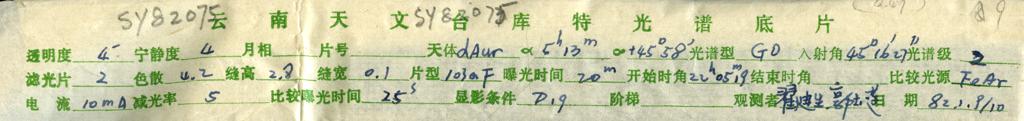 SY82075 云南天文台库特光谱底片 SY82075
透明度 4 宁静度 4 月相 片号 天体 αAur α 5h13m α+45°58' 光谱型 G0 入射角 45°16'27" 光谱级 2
滤光片 2 色散 4.2 缝高 2.8 缝宽 0.1 片型 103aF 曝光时间 20m 开始时角 22h05m.9 结束时角 比较光源 FeAr
电流 10mA 减光率 5 比较曝光时间 25s 显影条件 D19 阶梯 观测者 日期 82.1.9/10